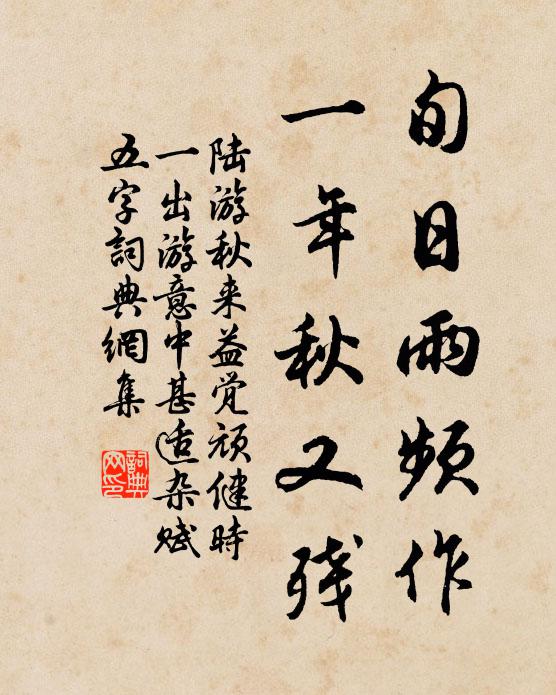 旬日雨频作
一年秋又残
陆游秋来益觉顽健时
一出游意中甚适杂赋
五字詞典網集
詞典网印